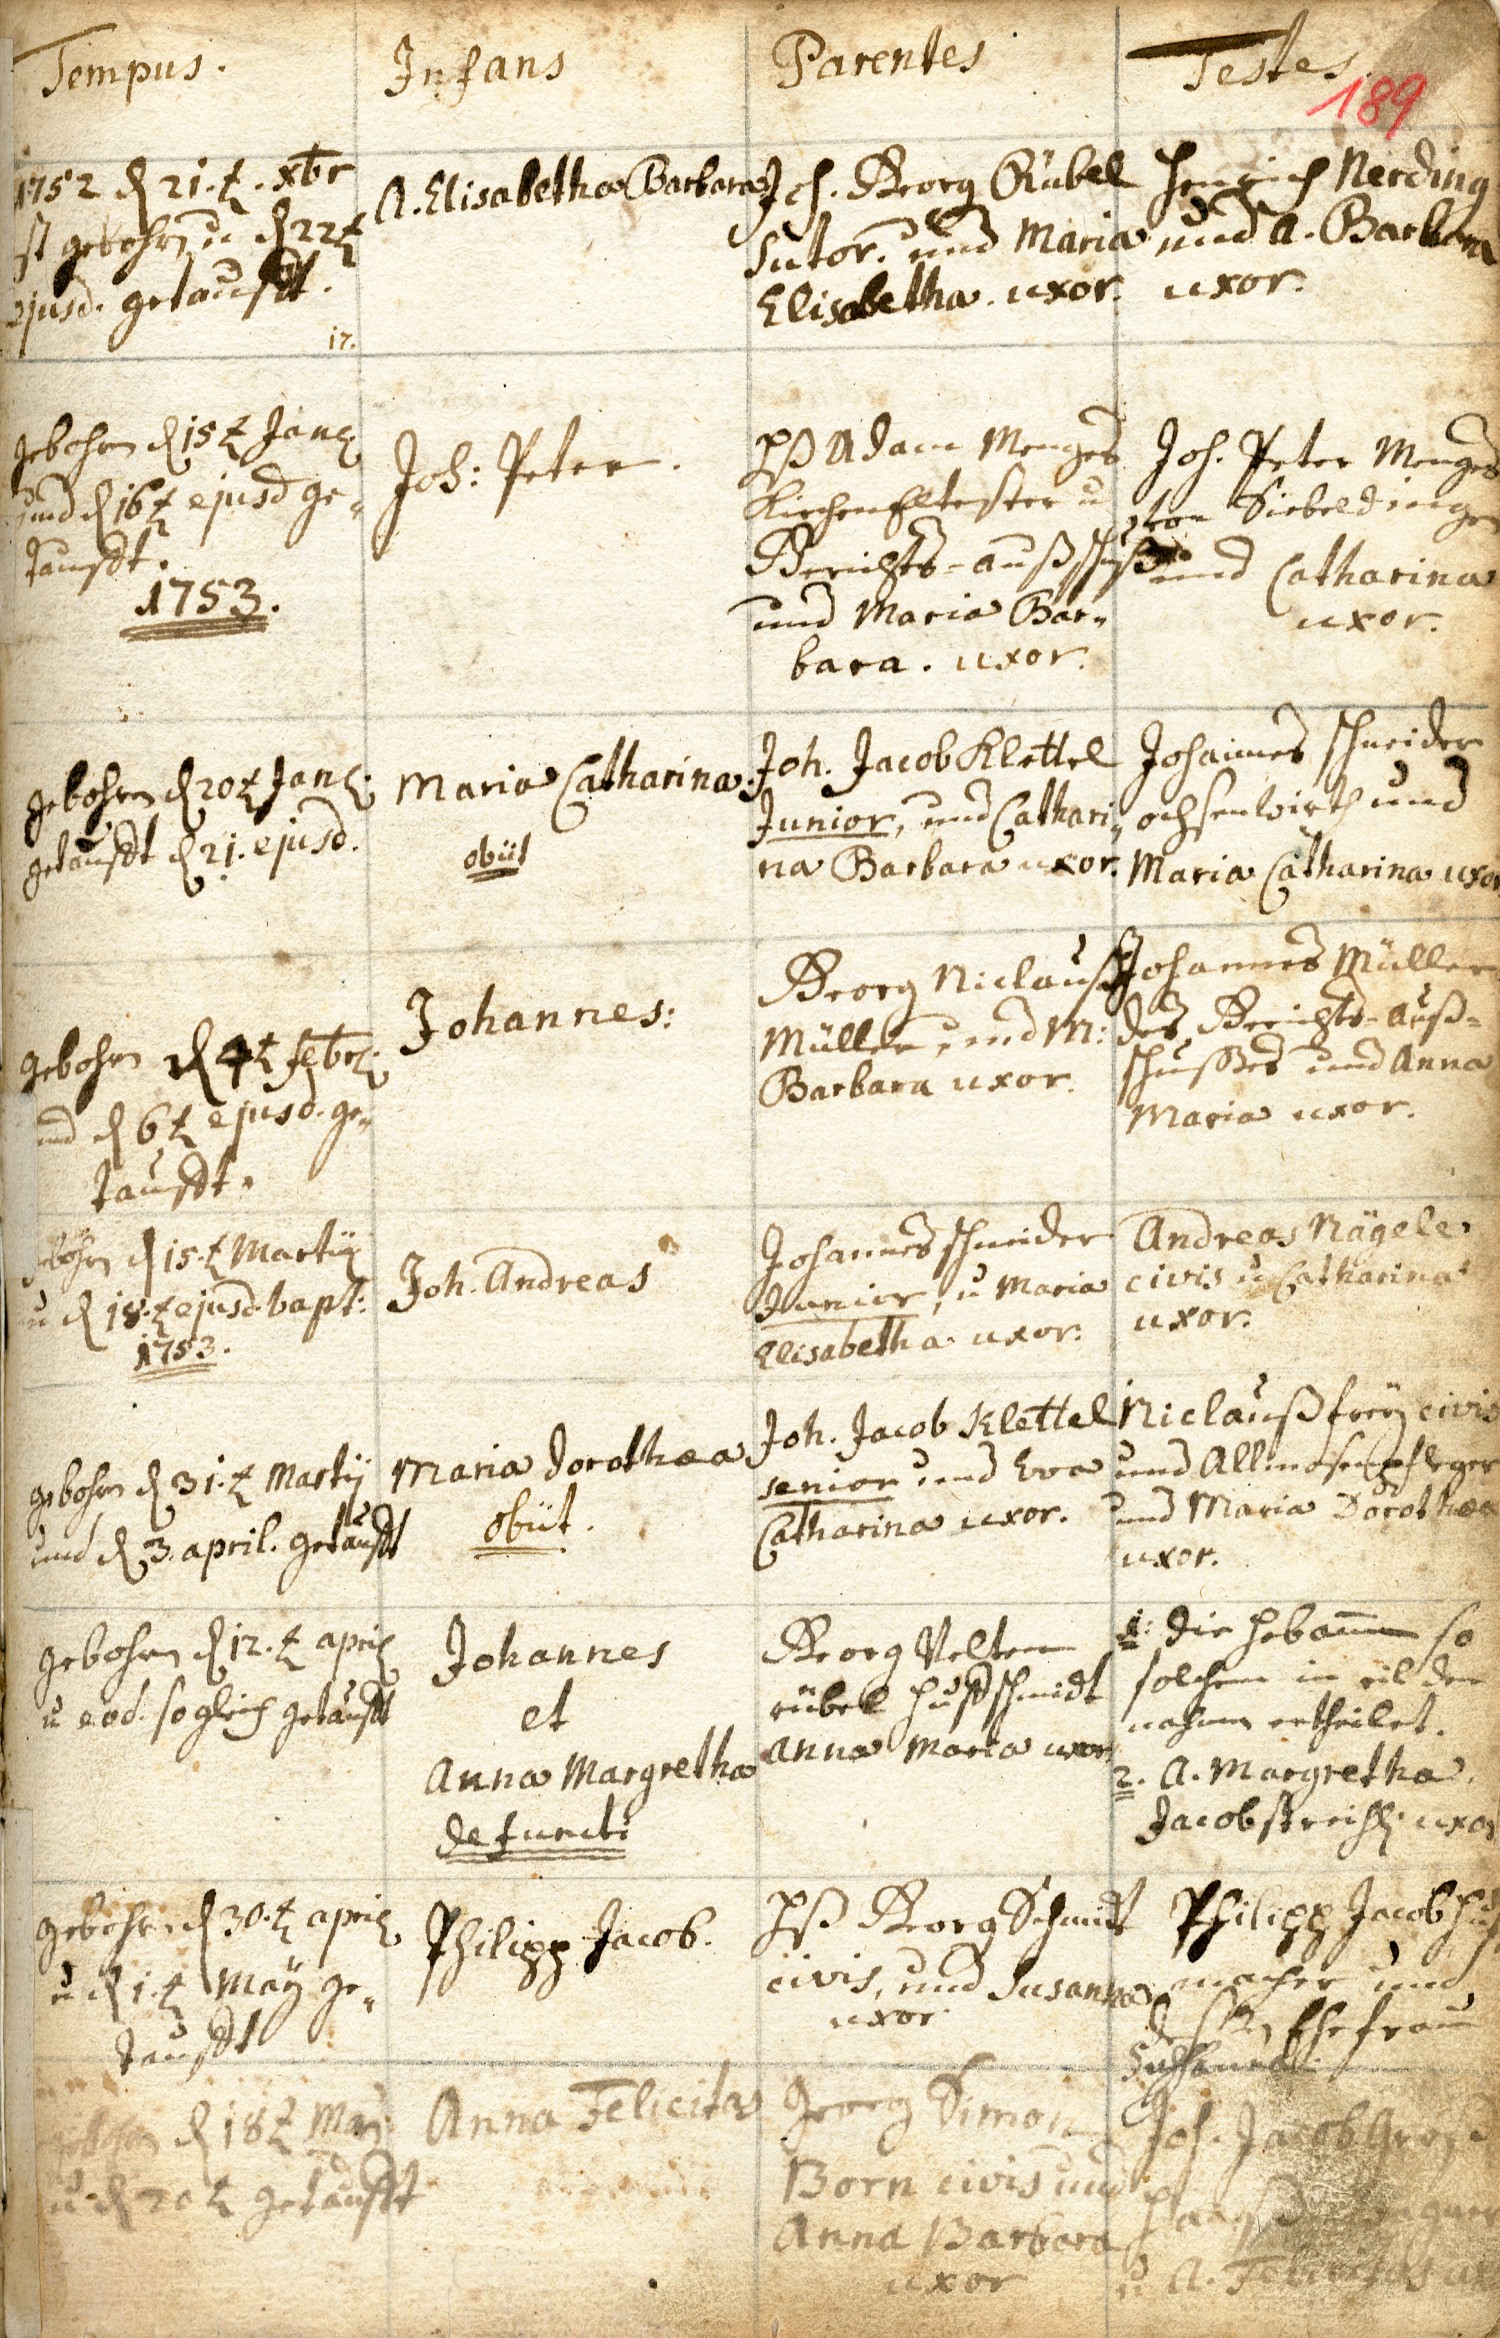 Tempus.
Infans
Parentes
Testes
189
1752 d 21.t. xbr
ist gebohren u d 22t
ejusd. getaufft.
17.
A. Elisabetha Barbara
Joh. Georg Rübel
Sutor. und Maria
Elisabetha. uxor.
Henrich Nerding
und A. Barbara
uxor.
gebohren d 15t Jan
und d 16t ejusd ge-
taufft.
1753.
Joh: Peter.
Adam Menges
KirchenEltester u
Gerichts-außschuß
und Maria Bar-
bara. uxor.
Joh. Peter Menges
von Siebeldingen
und Catharina
uxor.
gebohren d 20t Jan:
getaufft d 21. ejusd.
Maria Catharina.
obiit
Joh. Jacob Klettel
Junior, und Cathari-
na Barbara uxor.
Johannes schneider
ochsenwirth und
Maria Catharina uxor
gebohren d 4t febr:
und d 6t ejusd. ge-
taufft.
Johannes:
Georg Niclauß
Müller, und M:
Barbara uxor.
Johannes Müller
des Gerichts-Auß-
schusses und Anna
Maria uxor.
gebohren d 15.t Martij
u d 18.t ejusd. bapt:
1753.
Joh. Andreas
Johannes schneider
Junior, u Maria
Elisabetha uxor.
Andreas Nägele
civis u Catharina
uxor.
gebohren d 31.t Martij
und d 3. april. getaufft
Maria Dorothea
obiit.
Joh. Jacob Klettel
senior und Eva
Catharina uxor.
Niclauß frey civis
und Allmosenpfleger
und Maria Dorothea
uxor.
gebohren d 12.t april
u eod. sogleich getaufft
Johannes
et
Anna Margretha
defuncti
Georg Velten
rübel Huffschmidt
Anna Maria uxor
1: die Hebamm so
solchem in eil den
nahmen ertheilet.
2. A. Margretha
Jacob uxor
gebohren d 30.t april
u d 1.t May ge-
taufft
Philipp Jacob.
Georg Schmidt
civis, und Susanna
uxor
Philipp Jacob Hut
macher und
dessen Ehefrau
Susanna.
gebohren d 18t May
u d 20t getaufft
Anna Felicitas
Georg Simon
Born civis und
Anna Barbara
uxor
Joh. Jacob
Wagner
u A. Felicitas ux